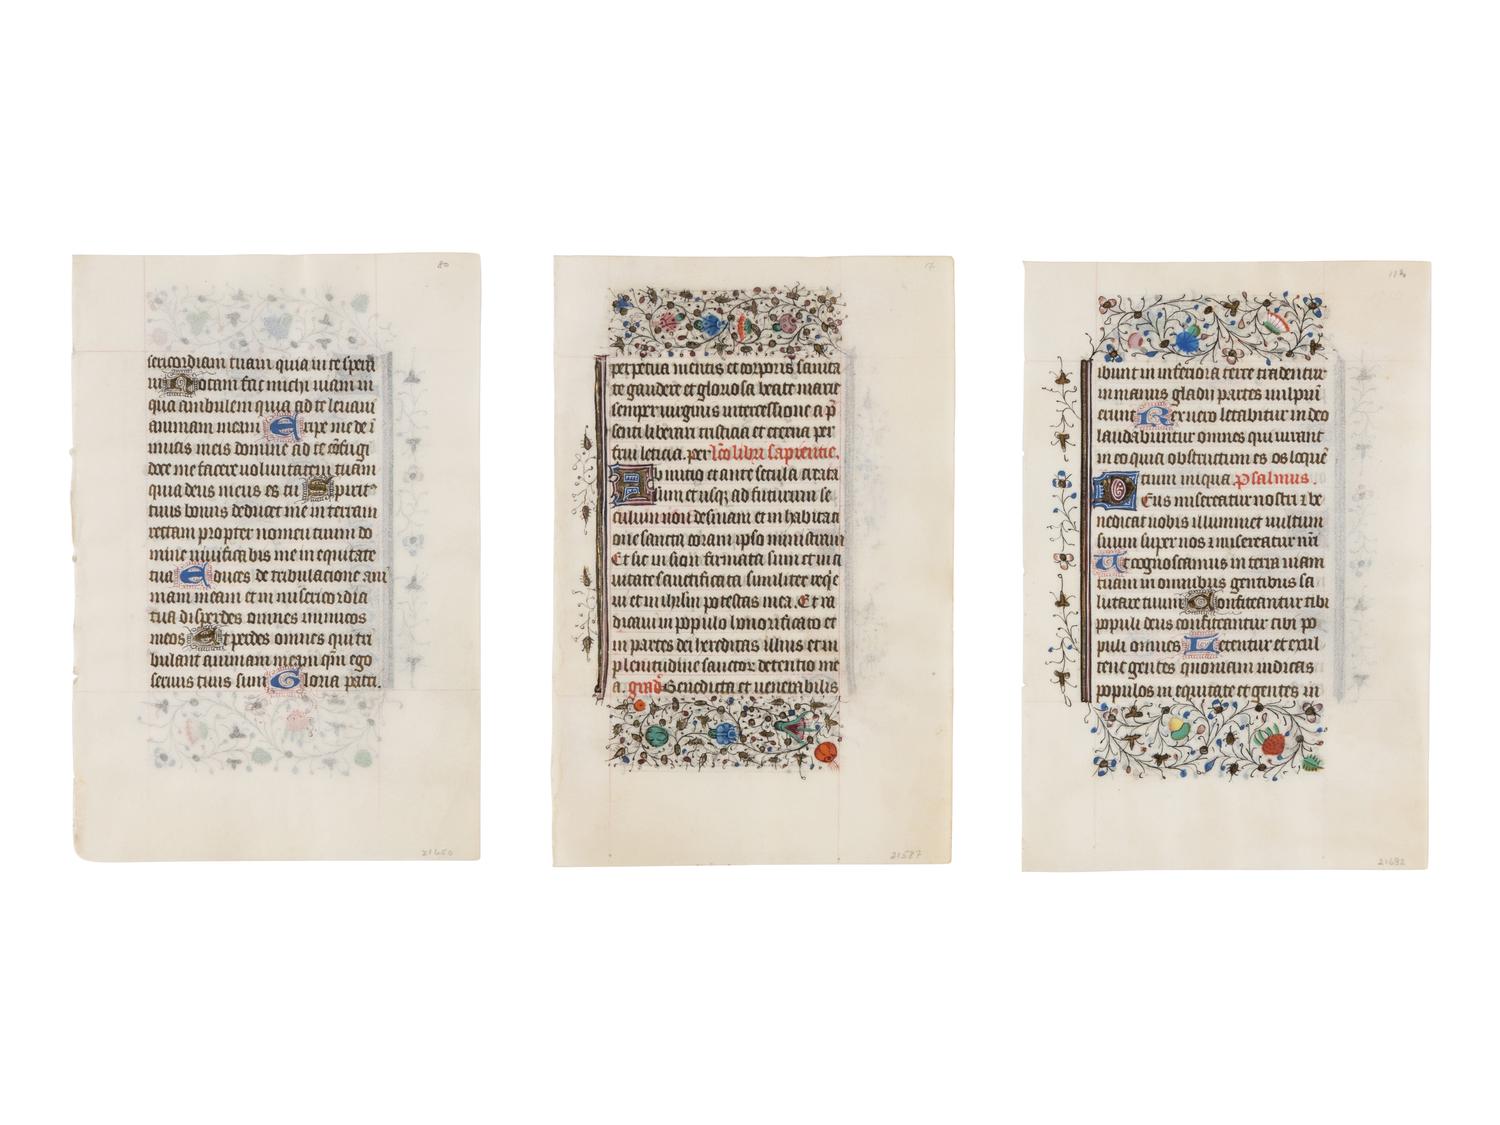 80
sericordiam tuam quia in te sperã
ui Notam fac michi uiam in
qua ambulem quia ad te leuaui
animam meam Eripe me de i
micis meis domine ad te cõfugi
doce me facere voluntatem tuam
quia deus meus es tu Spirit9
tuus bonus deducet me in terram
rectam propter nomen tuum do
mine uiuificabis me in equitate
tua Educes de tribulatione ani
mam meam et in misericordia
tua disperdes omnes inimicos
meos Et perdes omnes qui tri
bulant animam meam qm̃ ego
seruus tuus sum Gloria patri.
21650
17
perpetua mentis et corporis sanita
te gaudere et gloriosa beate marie
semper uirginis intercessione a p̃
senti liberari tristicia et eterna per
frui leticia. per lc̃o libri sapientie.
Ab initio et ante secula creata
sum et usq; ad futurum se
culum non desinam et in habitati
one sancta coram ipso ministraui
Et sic in sion firmata sum et in ci
uitate sanctificata similiter reqͥe
ui et in ihrl̃m potestas mea. Et ra
dicaui in populo honorificato et
in partes dei hereditas illius et in
plenitudine sanctor detentio me
a. grad̃ Benedicta et uenerabilis
21587
ibunt in inferiora terre tradentur
in manus gladii partes uulpiũ
erunt Rex uero letabitur in deo
laudabuntur omnes qui iurant
in eo quia obstructum es os loquẽ
tium iniqua Psalmus.
Deus misereatur nostri ⁊ be
nedicat nobis illuminet uultum
suum super nos ⁊ misereatur nr̃i
Ut cognoscamus in terra uiam
tuam in omnibus gentibus sa
lutare tuum Confiteantur tibi
populi deus confiteantur tibi po
puli omnes Letentur et exul
tent gentes quoniam iudicas
populos in equitate et gentes in
21692